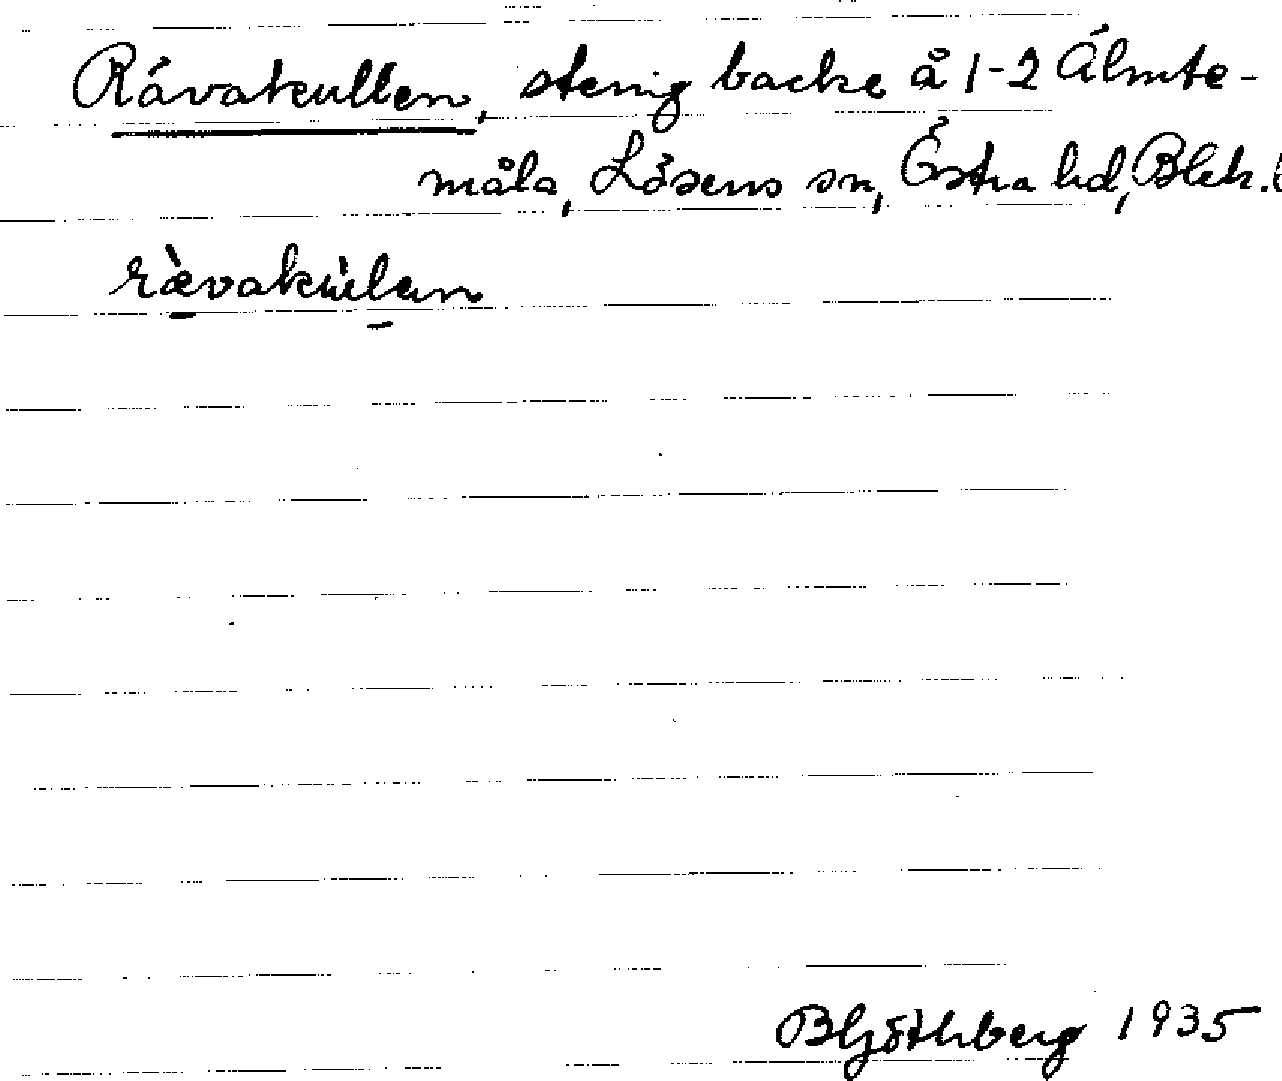 Rävakullen, stenig backe å 1-2 Älmte-
måla, Lösens sn, Östra hd, Blek. l
rävakùlen
1935